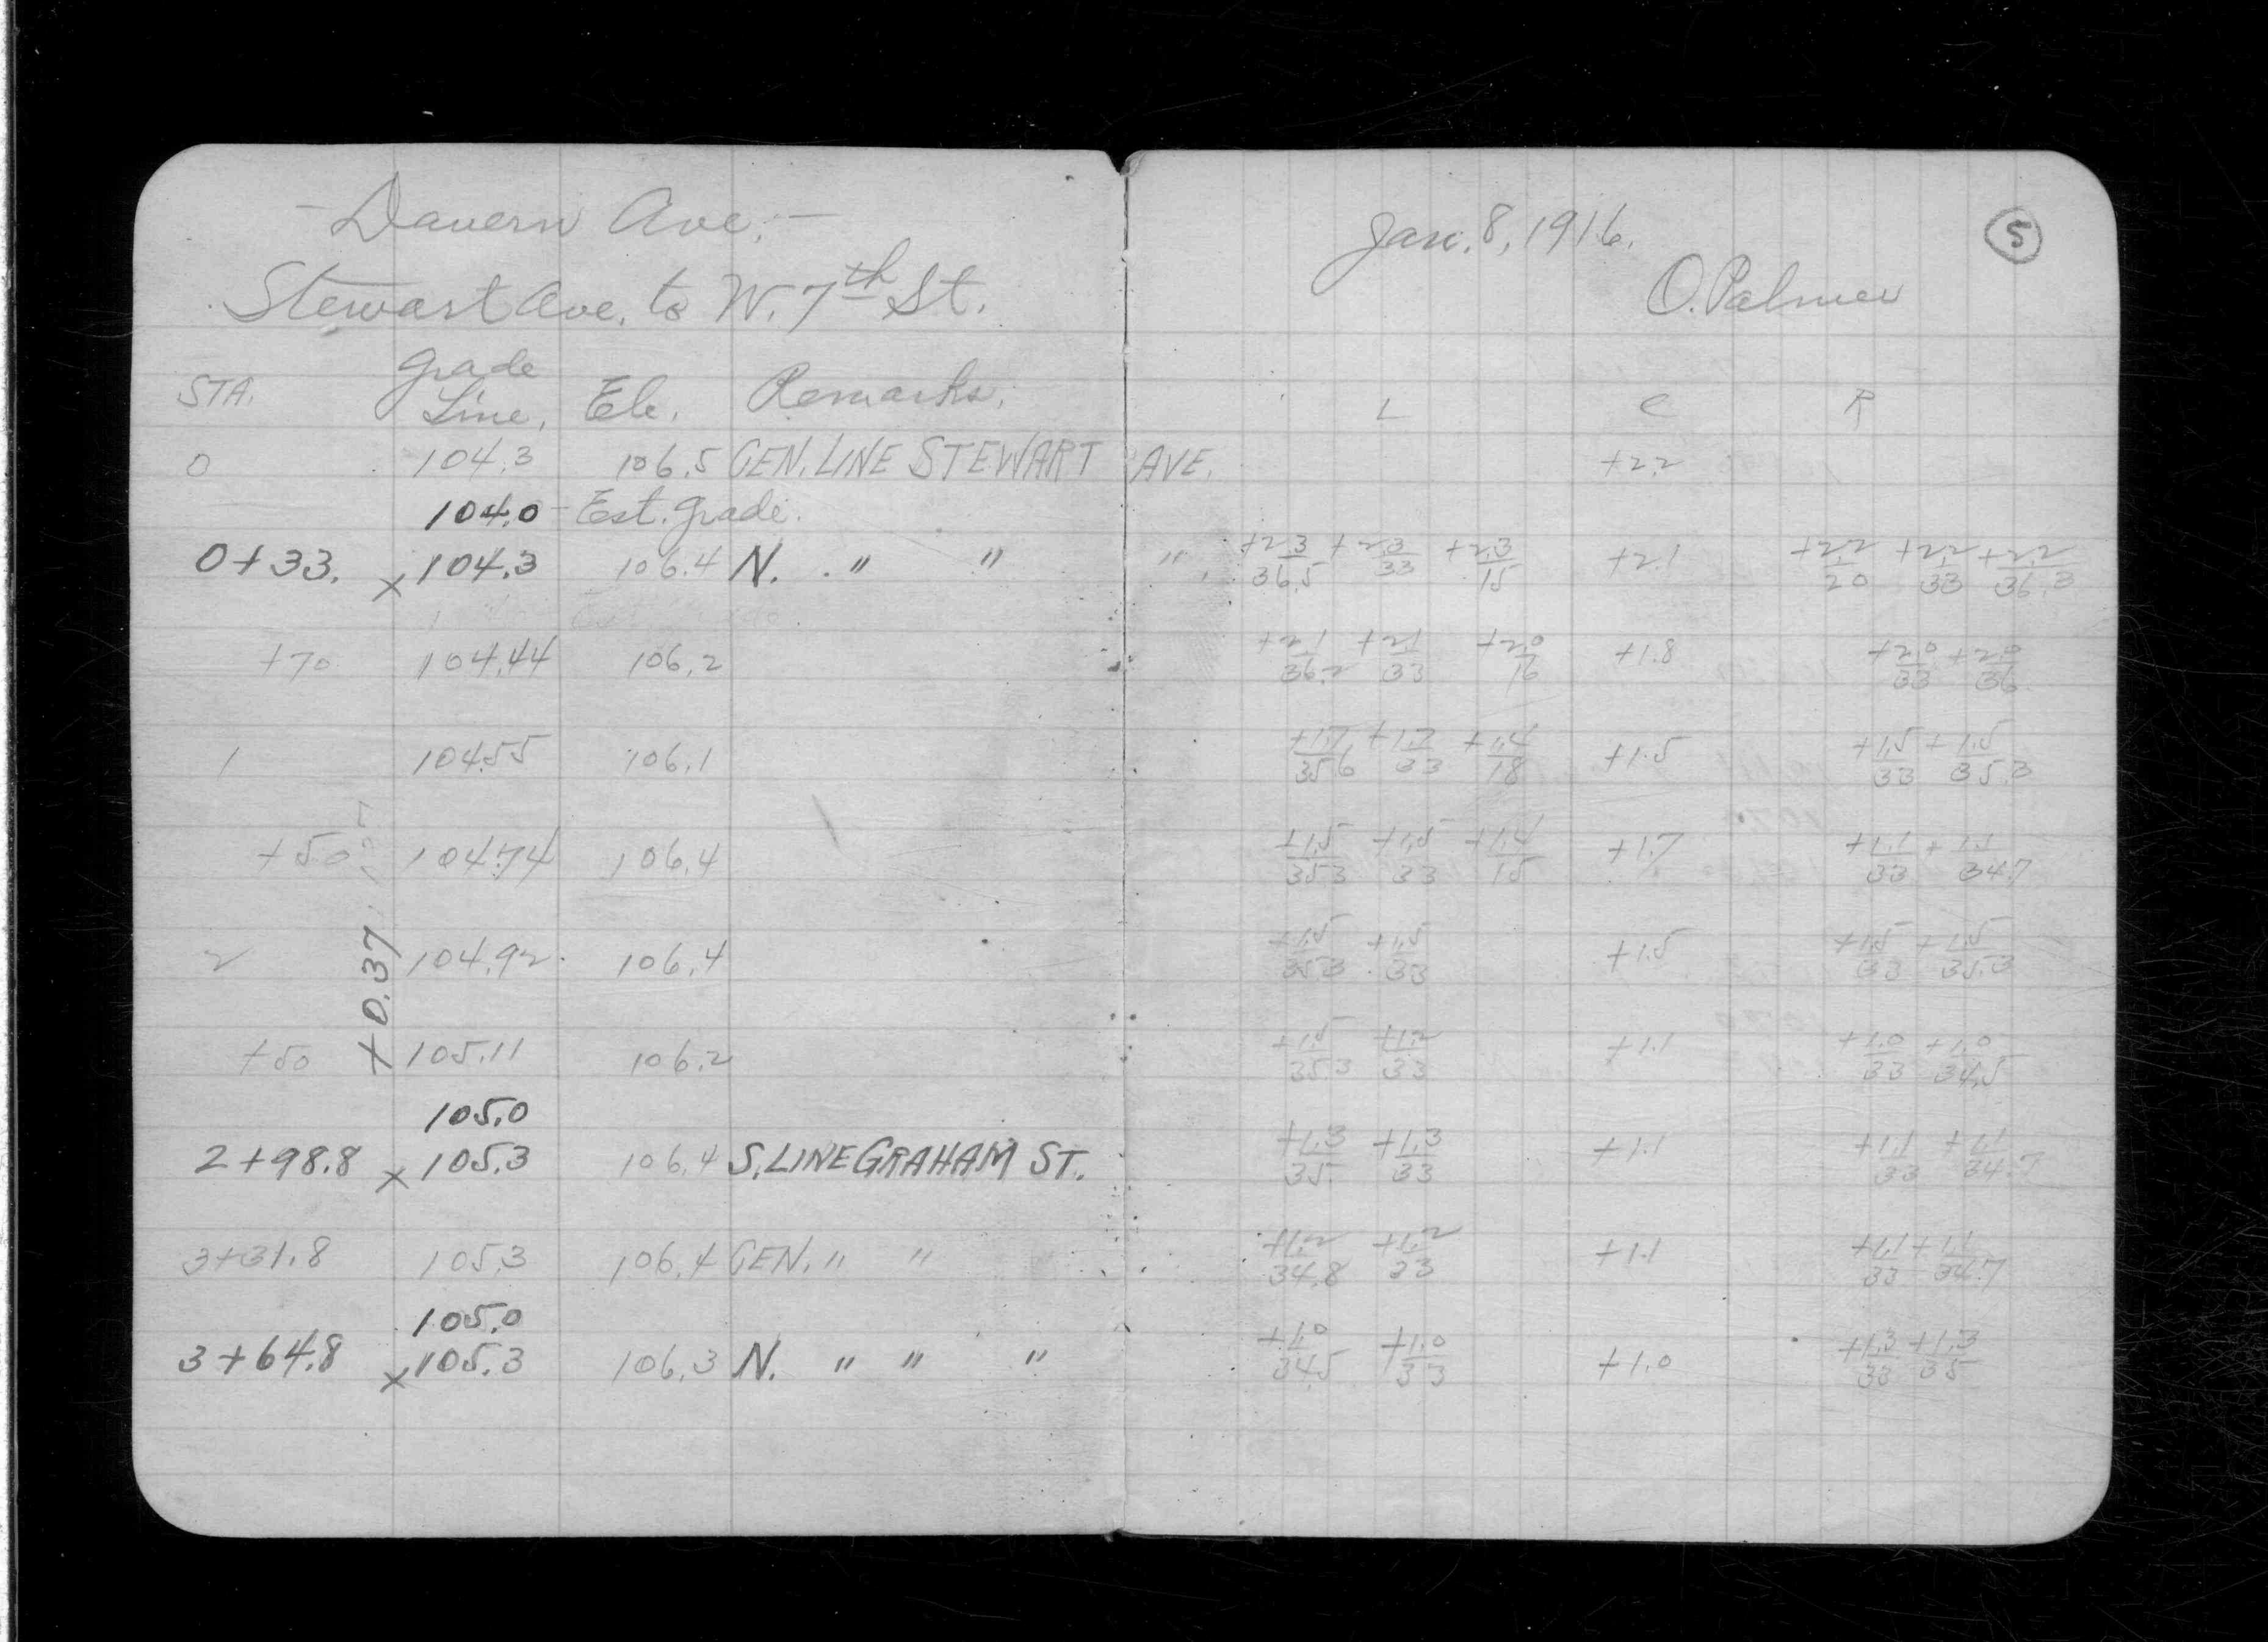 - Davern Ave. -
Stewart Ave. to W. 7th St.
Jan. 8, 1916.
O. Palmer
5
STA. Grade Line, Ele. Remarks. L C R
0 104.3 106.5 CEN. LINE STEWART AVE. +2.2
104.0 - Est. grade.
0+33. x 104.3 106.4 N. " " " +2.3/36.5 +2.3/33 +2.3/15 +2.1 +2.2/20 +2.2/33 +2.2/36.3
+70 104.44 106.2 +2.1/36.2 +2.1/33 +2.0/16 +1.8 +2.0/33 +2.0/36
1 104.55 106.1 +1.7/35.6 +1.7/33 +1.4/18 +1.5 +1.5/33 +1.5/35.3
+50 104.74 106.4 +1.5/35.3 +1.5/33 +1.4/15 +1.7 +1.1/33 +1.1/34.7
+0.37
2 104.92 106.4 +1.5/35.3 +1.5/33 +1.5 +1.5/33 +1.5/35.3
+50 105.11 106.2 +1.5/35.3 +1.2/33 +1.1 +1.0/33 +1.0/34.5
105.0
2+98.8 x 105.3 106.4 S. LINE GRAHAM ST. +1.3/35 +1.3/33 +1.1 +1.1/33 +1.1/34.7
3+31.8 105.3 106.4 CEN. " " +1.2/34.8 +1.2/33 +1.1 +1.1/33 +1.1/34.7
105.0
3+64.8 x 105.3 106.3 N. " " " +1.0/34.5 +1.0/33 +1.0 +1.3/33 +1.3/35